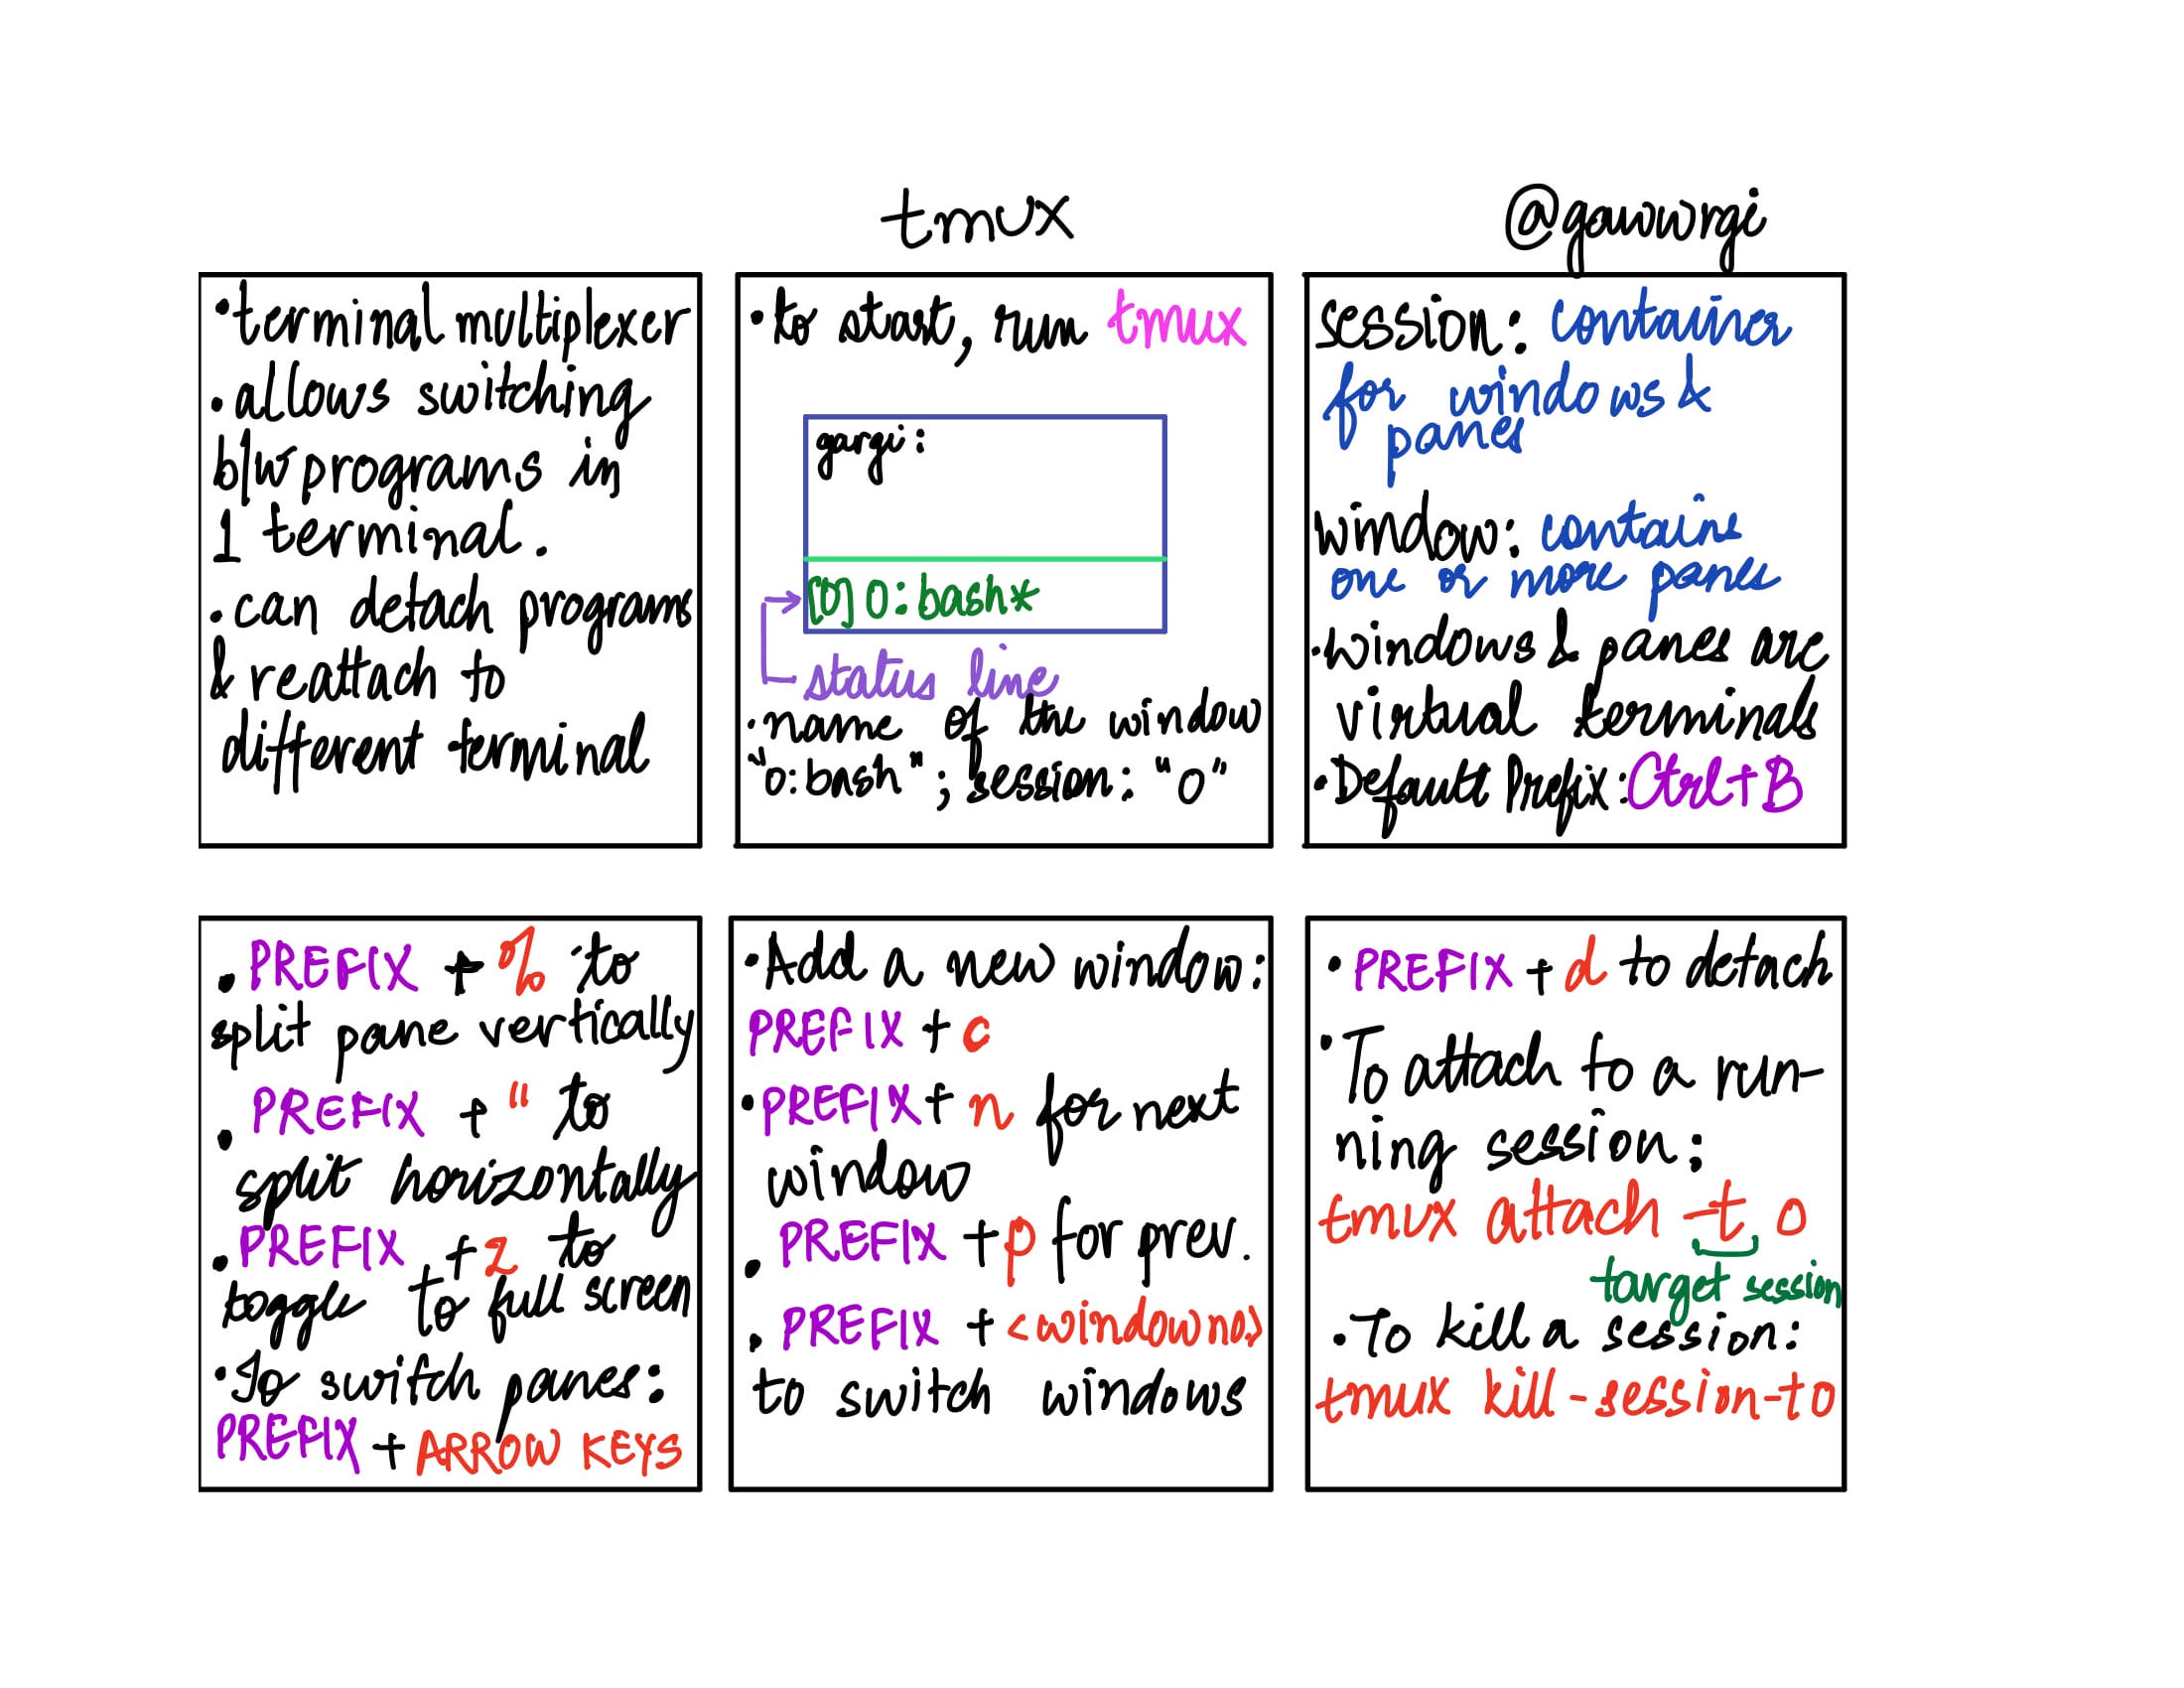 tmux
@gawwrgi
•terminal multiplexer
•allows switching
b/w programs in
1 terminal.
•can detach programs
& reattach to
different terminal
•to start, run tmux
gargi:
[0] 0:bash*
status line
•name of the window
"0:bash"; session: "0"
session: container
for windows &
panes
window: contains
one or more panes
•windows & panes are
virtual terminals
•Default Prefix: Ctrl+B
•PREFIX + % to
split pane vertically
•PREFIX + " to
split horizontally
•PREFIX + z to
toggle to full screen
•To switch panes:
PREFIX + ARROW KEYS
•Add a new window:
PREFIX + c
•PREFIX + n for next
window
•PREFIX + p for prev.
•PREFIX + <window no>
to switch windows
•PREFIX + d to detach
•To attach to a run-
ning session:
tmux attach -t 0
target session
•To kill a session:
tmux kill-session -t 0